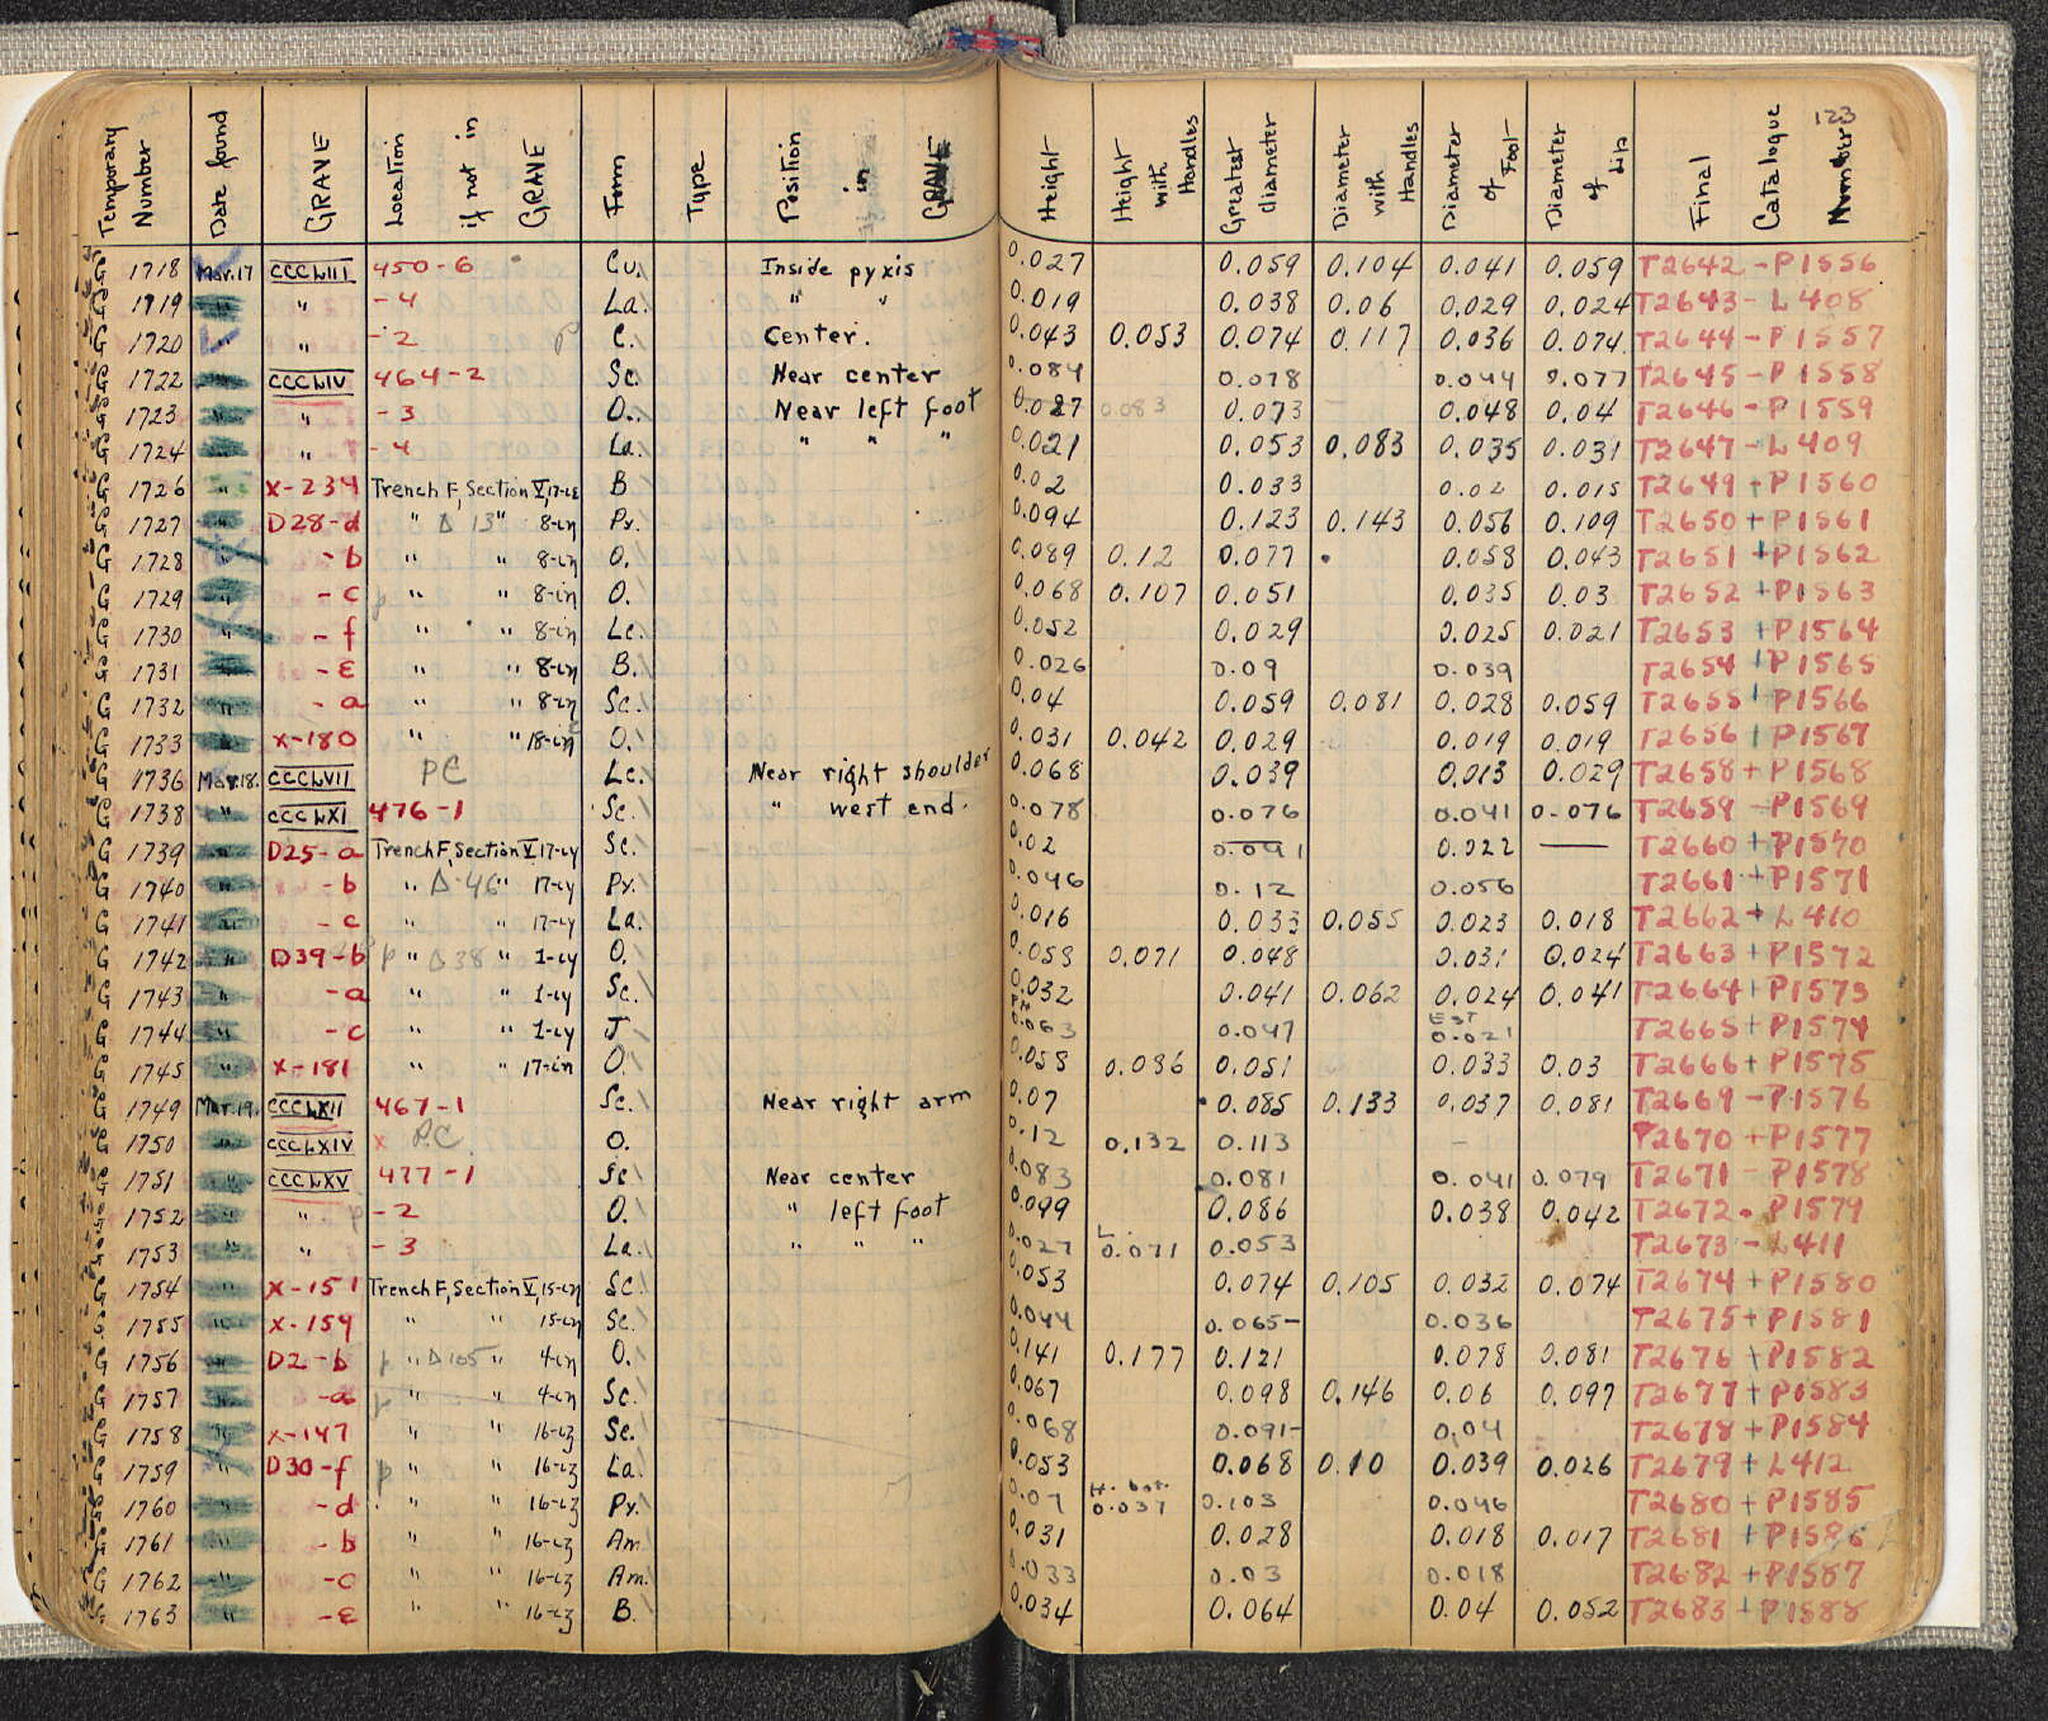 123
Temporary Number | Date found | GRAVE | Location if not in GRAVE | Form | Type | Position in GRAVE | Height | Height with Handles | Greatest diameter | Diameter with Handles | Diameter of Foot | Diameter of Lip | Final Catalogue Number
G 1718 Mar. 17 CCCLIII 450-6 Cu. Inside pyxis 0.027 0.059 0.104 0.041 0.059 T2642 - P1556
G 1719 " " -4 La. " " 0.019 0.038 0.06 0.029 0.024 T2643 - L408
G 1720 " " -2 P C. Center. 0.043 0.053 0.074 0.117 0.036 0.074 T2644 - P1557
G 1722 " CCCLIV 464-2 Sc. Near center 0.084 0.078 0.044 0.077 T2645 - P1558
G 1723 " " -3 O. Near left foot 0.027 0.083 0.073 0.048 0.04 T2646 - P1559
G 1724 " " -4 La. " " " 0.021 0.053 0.083 0.035 0.031 T2647 - L409
G 1726 " X-234 Trench F, Section V, B 0.02 0.033 0.02 0.015 T2649 - P1560
G 1727 " D28-d " Δ 13 " 8-in Py. 0.094 0.123 0.143 0.056 0.109 T2650 + P1561
G 1728 " -b " " 8-in O. 0.089 0.12 0.077 0.058 0.043 T2651 + P1562
G 1729 " -c p " " 8-in O. 0.068 0.107 0.051 0.035 0.03 T2652 + P1563
G 1730 " -f " " 8-in Lc. 0.052 0.029 0.025 0.021 T2653 + P1564
G 1731 " -e " " 8-in B. 0.026 0.09 0.039 T2654 + P1565
G 1732 " -a " " 8-in Sc. 0.04 0.059 0.081 0.028 0.059 T2655 + P1566
G 1733 " X-180 " " 18-in O. 0.031 0.042 0.029 0.019 0.019 T2656 + P1567
G 1736 Mar. 18. CCCLVII PC Lc. Near right shoulder 0.068 0.039 0.013 0.029 T2658 + P1568
G 1738 " CCCLXI 476-1 Sc. " west end. 0.078 0.076 0.041 0.076 T2659 - P1569
G 1739 " D25-a Trench F, Section V 17-iy Sc. 0.02 0.091 0.022 — T2660 + P1570
G 1740 " -b " Δ 46 " 17-iy Py. 0.046 0.12 0.056 T2661 + P1571
G 1741 " -c " " 17-iy La. 0.016 0.033 0.055 0.023 0.018 T2662 + L410
G 1742 " D39-b p " Δ38 " 1-iy O. 0.058 0.071 0.048 0.031 0.024 T2663 + P1572
G 1743 " -a " " 1-iy Sc. 0.032 0.041 0.062 0.024 0.041 T2664 + P1573
G 1744 " -c " " 1-iy J PH 0.063 0.047 EST 0.021 T2665 + P1574
G 1745 " X-181 " " 17-in O. 0.058 0.086 0.051 0.033 0.03 T2666 + P1575
G 1749 Mar. 19. CCCLXII 467-1 Sc. Near right arm 0.07 0.085 0.133 0.037 0.081 T2669 - P1576
G 1750 " CCCLXIV x P.C O. 0.12 0.132 0.113 – T2670 + P1577
G 1751 " CCCLXV 477-1 Sc. Near center 0.083 0.081 0.041 0.079 T2671 - P1578
G 1752 " " p -2 O. " left foot 0.099 0.086 0.038 0.042 T2672 - P1579
G 1753 " " -3 La. " " " 0.027 L. 0.071 0.053 T2673 - L411
G 1754 " X-151 Trench F, Section V, 15-in Sc. 0.053 0.074 0.105 0.032 0.074 T2674 + P1580
G 1755 " X-159 " " 15-in Sc. 0.044 0.065- 0.036 T2675 + P1581
G 1756 " D2-b p " Δ105 " 4-in O. 0.141 0.177 0.121 0.078 0.081 T2676 + P1582
G 1757 " -a p " " 4-in Sc. 0.067 0.098 0.146 0.06 0.097 T2677 + P1583
G 1758 " X-147 " " 16-iz Sc. 0.068 0.091- 0.04 T2678 + P1584
G 1759 " D30-f p " " 16-iz La. 0.053 0.068 0.10 0.039 0.026 T2679 + L412
G 1760 " -d " " 16-iz Py. 0.07 H. bot. 0.037 0.103 0.046 T2680 + P1585
G 1761 " -b " " 16-iz Am 0.031 0.028 0.018 0.017 T2681 + P1586
G 1762 " -c " " 16-iz Am. 0.033 0.03 0.018 T2682 + P1587
G 1763 " -e " " 16-iz B. 0.034 0.064 0.04 0.052 T2683 + P1588